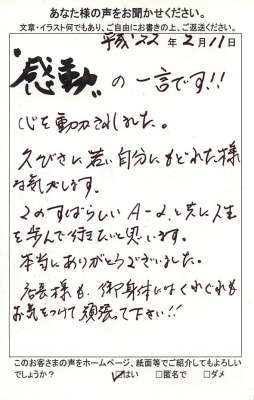 あなた様の声をお聞かせください。
文章・イラスト何でもあり、ご自由にお書きの上、ご返送ください。
平成22年2月11日
"感動"の一言です!!
心を動かされました。
久びさに若い自分にもどれた様
な気がします。
このすばらしい A-2、と共に人生
を歩んで行きたいと思います。
本当にありがとうございました。
店長様も、御身体にはくれぐれも
お気をつけて頑張って下さい!!
このお客さまの声をホームページ、紙面等でご紹介してもよろしい
でしょうか? ☑はい □匿名で □ダメ